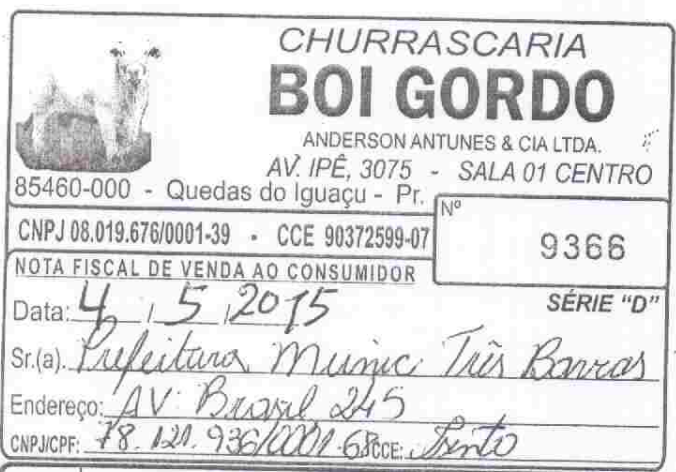 CHURRASCARIA
BOI GORDO
ANDERSON ANTUNES & CIA LTDA.
AV. IPÊ, 3075 - SALA 01 CENTRO
85460-000 - Quedas do Iguaçu - Pr.
CNPJ 08.019.676/0001-39 - CCE 90372599-07
Nº
9366
NOTA FISCAL DE VENDA AO CONSUMIDOR
SÉRIE "D"
Data: 4 / 5 / 2015
Sr.(a). Prefeitura Munic Três Barras
Endereço: AV: Brasil 245
CNPJ/CPF: 78.121.936/0001-68 CCE: Isento